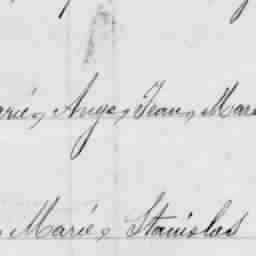 Ange, Jean, Mar
, Marie, Stanislas